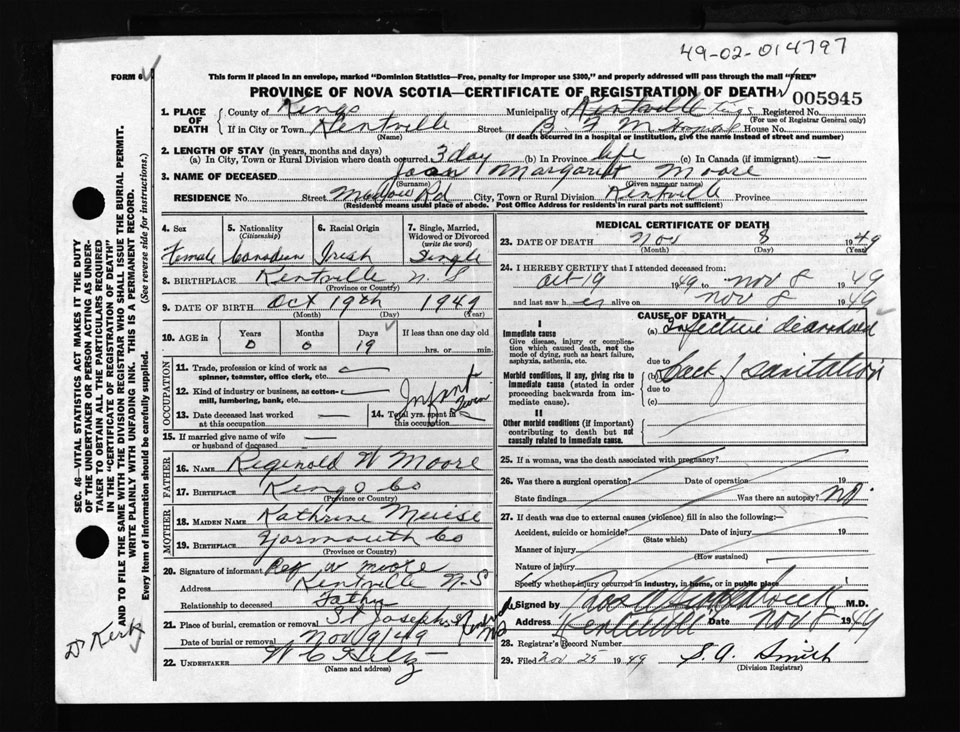 49-02-014797
FORM 6
This form if placed in an envelope, marked "Dominion Statistics—Free, penalty for improper use $300," and properly addressed will pass through the mail "FREE"
PROVINCE OF NOVA SCOTIA—CERTIFICATE OF REGISTRATION OF DEATH
005945
1. PLACE OF DEATH County of Kings Municipality of Kentville Kings Registered No.
(For use of Registrar General only)
If in City or Town Kentville Street B F M Hospital House No.
(Name) (If death occurred in a hospital or institution, give the name instead of street and number)
2. LENGTH OF STAY (in years, months and days)
(a) In City, Town or Rural Division where death occurred 3 day (b) In Province life (c) In Canada (if immigrant) —
3. NAME OF DECEASED Joan Margaret Moore
(Surname) (Given name or names)
RESIDENCE No. Street Rd City, Town or Rural Division Kentville Province
(Residence means usual place of abode. Post Office Address for residents in rural parts not sufficient)
4. Sex 5. Nationality (Citizenship) 6. Racial Origin 7. Single, Married, Widowed or Divorced (write the word)
Female Canadian Irish Single
8. BIRTHPLACE Kentville N.S
(Province or Country)
9. DATE OF BIRTH Oct 19th 1949
(Month) (Day) (Year)
10. AGE in Years Months Days If less than one day old
0 0 19 hrs. or min.
OCCUPATION
11. Trade, profession or kind of work as spinner, teamster, office clerk, etc.
12. Kind of industry or business, as cotton-mill, lumbering, bank, etc.
Infant
13. Date deceased last worked at this occupation 14. Total yrs. spent in this occupation
15. If married give name of wife or husband of deceased
FATHER
16. NAME Reginald W Moore
17. BIRTHPLACE Kings Co
(Province or Country)
MOTHER
18. MAIDEN NAME Kathrine Muise
19. BIRTHPLACE Yarmouth Co
(Province or Country)
20. Signature of informant Reg W Moore
Address Kentville N-S
Relationship to deceased Father
21. Place of burial, cremation or removal St Josephs Kentville NS
Date of burial or removal Nov 9/49
22. UNDERTAKER W C Hiltz
(Name and address)
MEDICAL CERTIFICATE OF DEATH
23. DATE OF DEATH Nov 8 1949
(Month) (Day) (Year)
24. I HEREBY CERTIFY that I attended deceased from
Oct-19 1949 to Nov 8 1949
and last saw her alive on Nov 8 1949
CAUSE OF DEATH
I
Immediate cause (a) Infective diarrhoea
Give disease, injury or complication which caused death, not the mode of dying, such as heart failure, asphyxia, asthenia, etc.
due to
Morbid conditions, if any, giving rise to immediate cause (stated in order proceeding backwards from immediate cause).
(b) Lack of sanitation
due to
(c)
II
Other morbid conditions (if important) contributing to death but not causally related to immediate cause.
25. If a woman, was the death associated with pregnancy?
26. Was there a surgical operation? Date of operation 19
State findings Was there an autopsy? no.
27. If death was due to external causes (violence) fill in also the following:—
Accident, suicide or homicide? Date of injury 19
(State which)
Manner of injury
(How sustained)
Nature of injury
Specify whether injury occurred in industry, in home, or in public place
Signed by M.D.
Address Kentville Date Nov 8 1949
28. Registrar's Record Number
29. Filed Nov 25 1949 S.A. Smith
(Division Registrar)
SEC. 46—VITAL STATISTICS ACT MAKES IT THE DUTY
OF THE UNDERTAKER OR PERSON ACTING AS UNDER-
TAKER TO OBTAIN ALL THE PARTICULARS REQUIRED
IN THE "CERTIFICATE OF REGISTRATION OF DEATH"
AND TO FILE THE SAME WITH THE DIVISION REGISTRAR WHO SHALL ISSUE THE BURIAL PERMIT.
WRITE PLAINLY WITH UNFADING INK. THIS IS A PERMANENT RECORD.
Every item of information should be carefully supplied. (See reverse side for instructions.)
Dr Kerk